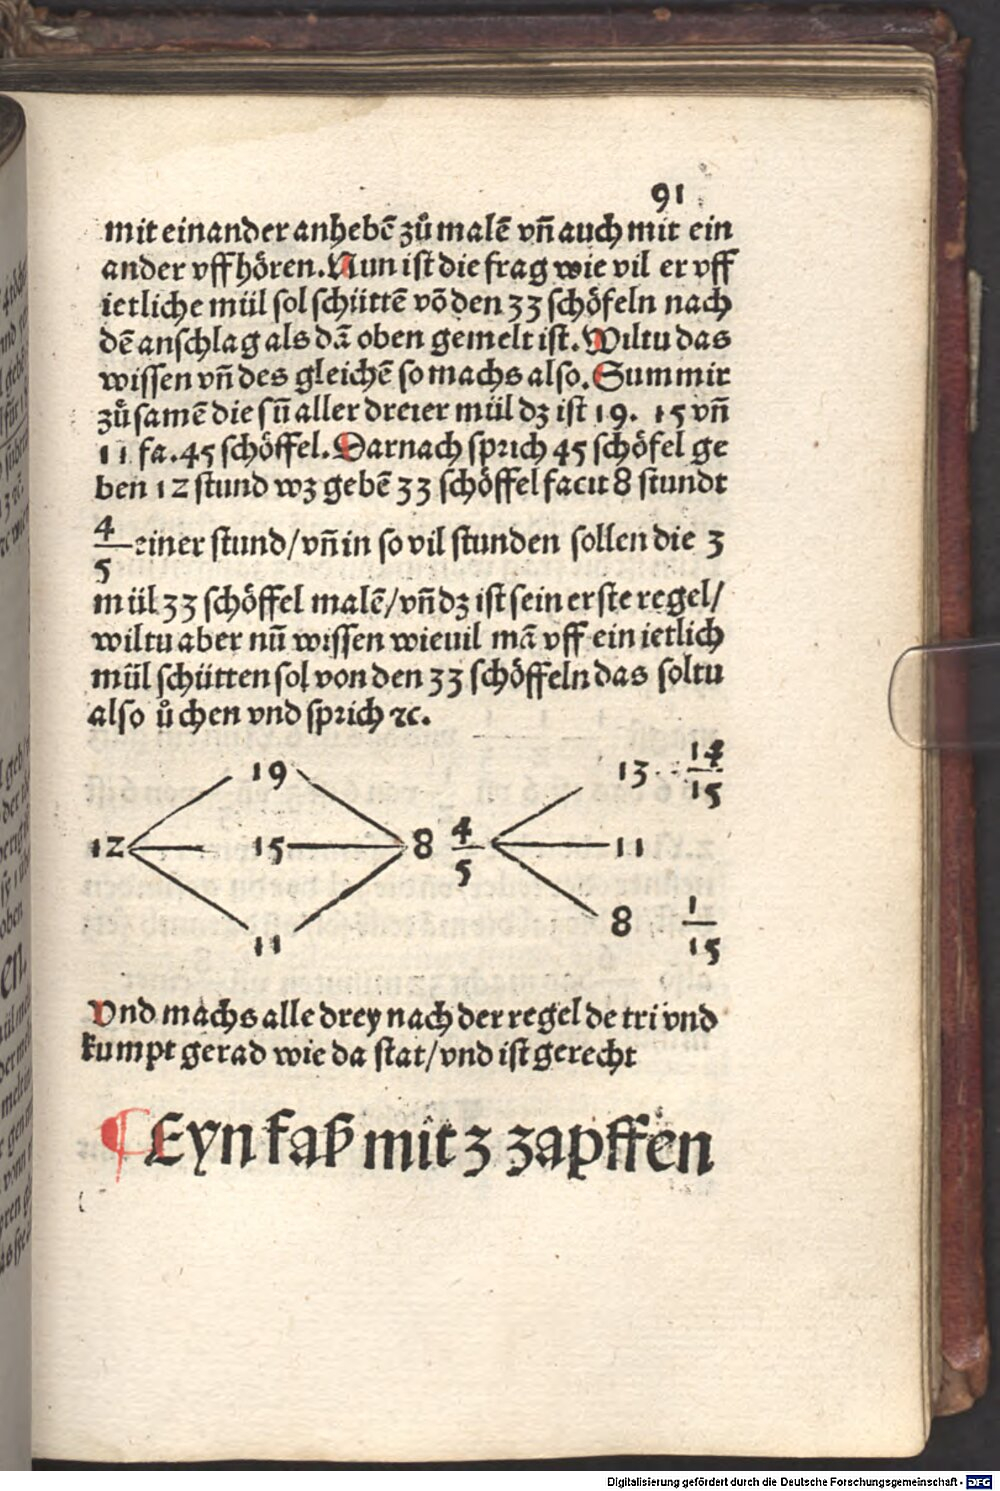 91
mit einander anhebē zů malē vn̄ auch mit ein
ander vff hören. Nun ist die frag wie vil er vff
ietliche mül sol schüttē vō den 33 schöfeln nach
dē anschlag als dā oben gemelt ist. Wiltu das
wissen vn̄ des gleichē so machs also. Summir
zů samē die sūaller dreier mül dz ist 19. 15 vn̄
11 fa. 45 schöffel. Darnach sprich 45 schöfel ge
ben 12 stund wz gebē 33 schöffel facit 8 stundt
4/5 einer stund/vn̄ in so vil stunden sollen die 3
mül 33 schöffel malē/vn̄ dz ist sein erste regel/
wiltu aber nū wissen wieuil mā vff ein ietlich
mül schütten sol von den 33 schöffeln das soltu
also ůchen vnd sprich ⁊c.
19 13 14/15
12 15 8 4/5 11
11 8 1/15
Vnd machs alle drey nach der regel de tri vnd
kumpt gerad wie da stat/vnd ist gerecht
¶ Eyn faß mit 3 zapffen
Digitalisierung gefördert durch die Deutsche Forschungsgemeinschaft - DFG